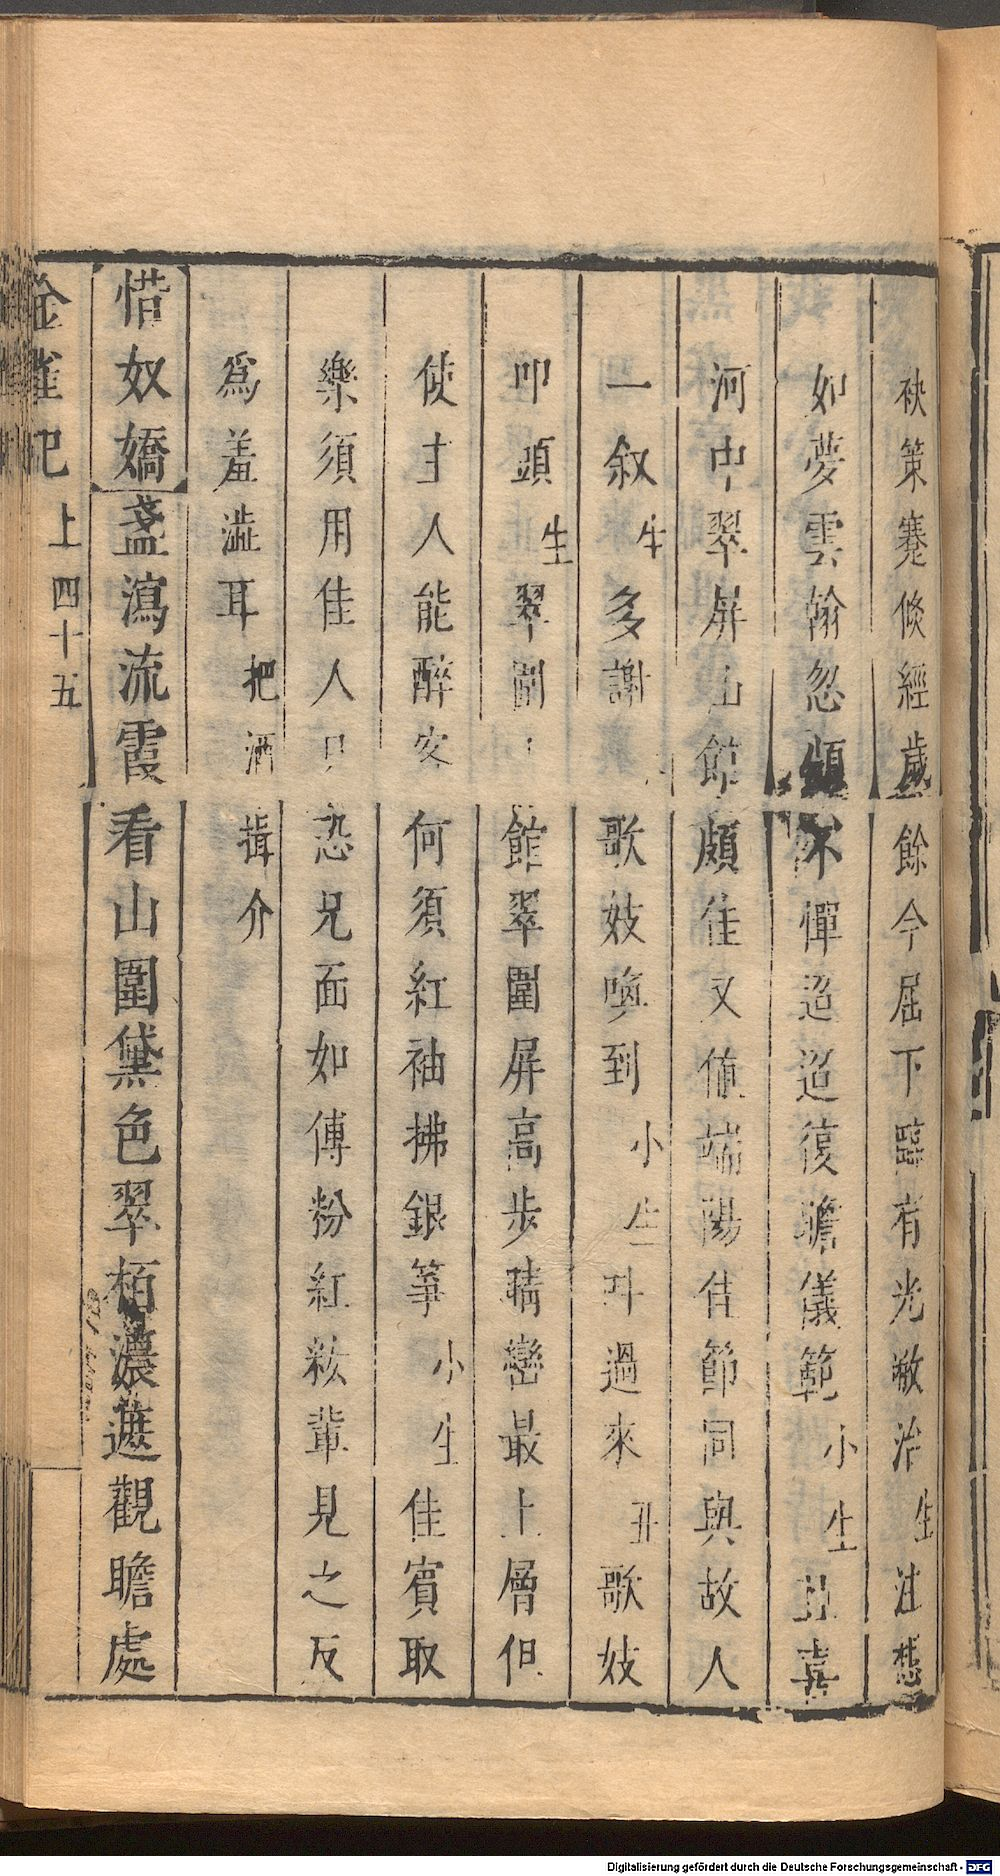 袂策蹇倐經歲餘今屈下臨有光敝治生注想
如夢雲翰忽頒不憚迢迢復瞻儀範小生且喜
河中翠屏山館頗佳又值端陽佳節同與故人
一叙生多謝歌妓喚到小生叫過來丑歌妓
叩頭生翠園館翠圍屏高步晴巒最上層但
使主人能醉客何須紅袖拂銀筝小生佳賓取
樂須用佳人只恐兄面如傅粉紅粧輩見之反
爲羞澁耳把酒揖介
惜奴嬌盞瀉流霞看山圍黛色翠栢濃遮觀瞻處
金雀記 上 四十五
Digitalisierung gefördert durch die Deutsche Forschungsgemeinschaft - DFG